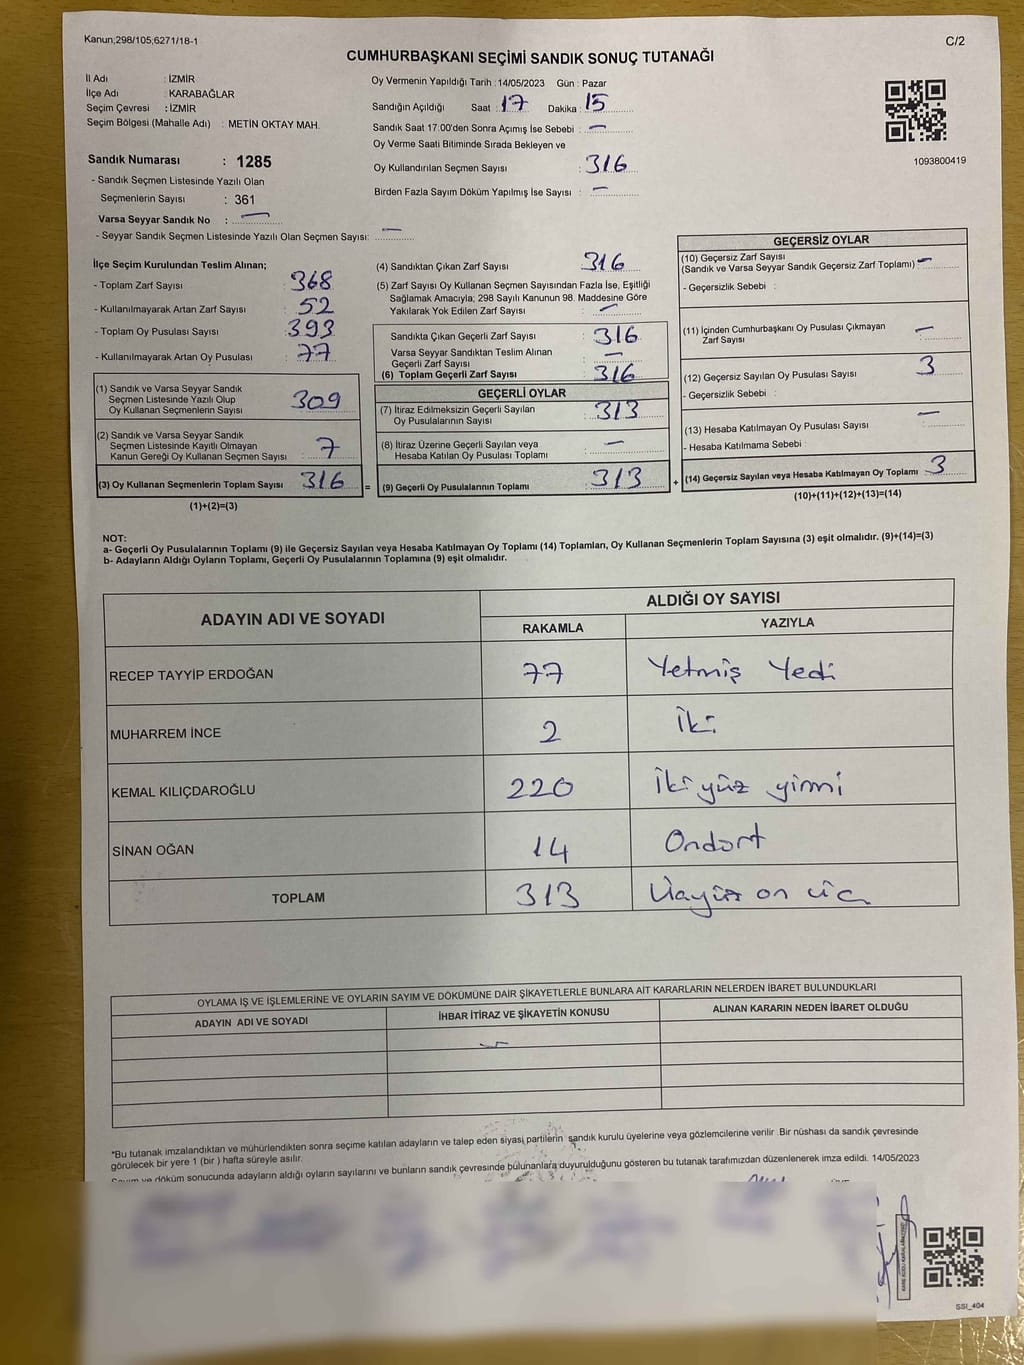 Kanun;298/105;6271/18-1
C/2
CUMHURBAŞKANI SEÇİMİ SANDIK SONUÇ TUTANAĞI
İl Adı : İZMİR
İlçe Adı : KARABAĞLAR
Seçim Çevresi : İZMİR
Seçim Bölgesi (Mahalle Adı) : METİN OKTAY MAH.
Sandık Numarası : 1285
- Sandık Seçmen Listesinde Yazılı Olan
Seçmenlerin Sayısı : 361
Varsa Seyyar Sandık No : —
- Seyyar Sandık Seçmen Listesinde Yazılı Olan Seçmen Sayısı: —
Oy Vermenin Yapıldığı Tarih : 14/05/2023 Gün : Pazar
Sandığın Açıldığı Saat : 17 Dakika : 15
Sandık Saat 17:00'den Sonra Açımış İse Sebebi : —
Oy Verme Saati Bitiminde Sırada Bekleyen ve
Oy Kullandırılan Seçmen Sayısı : 316
Birden Fazla Sayım Döküm Yapılmış İse Sayısı : —
1093800419
İlçe Seçim Kurulundan Teslim Alınan;
- Toplam Zarf Sayısı : 368
- Kullanılmayarak Artan Zarf Sayısı : 52
- Toplam Oy Pusulası Sayısı : 393
- Kullanılmayarak Artan Oy Pusulası : 77
(1) Sandık ve Varsa Seyyar Sandık
Seçmen Listesinde Yazılı Olup
Oy Kullanan Seçmenlerin Sayısı : 309
(2) Sandık ve Varsa Seyyar Sandık
Seçmen Listesinde Kayıtlı Olmayan
Kanun Gereği Oy Kullanan Seçmen Sayısı : 7
(3) Oy Kullanan Seçmenlerin Toplam Sayısı : 316
(1)+(2)=(3)
=
(4) Sandıktan Çıkan Zarf Sayısı : 316
(5) Zarf Sayısı Oy Kullanan Seçmen Sayısından Fazla İse, Eşitliği
Sağlamak Amacıyla; 298 Sayılı Kanunun 98. Maddesine Göre
Yakılarak Yok Edilen Zarf Sayısı : —
Sandıkta Çıkan Geçerli Zarf Sayısı : 316
Varsa Seyyar Sandıktan Teslim Alınan
Geçerli Zarf Sayısı : —
(6) Toplam Geçerli Zarf Sayısı : 316
GEÇERLİ OYLAR
(7) İtiraz Edilmeksizin Geçerli Sayılan
Oy Pusulalarının Sayısı : 313
(8) İtiraz Üzerine Geçerli Sayılan veya
Hesaba Katılan Oy Pusulası Toplamı : —
(9) Geçerli Oy Pusulalarının Toplamı : 313
+
GEÇERSİZ OYLAR
(10) Geçersiz Zarf Sayısı
(Sandık ve Varsa Seyyar Sandık Geçersiz Zarf Toplamı) : —
- Geçersizlik Sebebi :
(11) İçinden Cumhurbaşkanı Oy Pusulası Çıkmayan
Zarf Sayısı : —
(12) Geçersiz Sayılan Oy Pusulası Sayısı : 3
- Geçersizlik Sebebi :
(13) Hesaba Katılmayan Oy Pusulası Sayısı : —
- Hesaba Katılmama Sebebi :
(14) Geçersiz Sayılan veya Hesaba Katılmayan Oy Toplamı : 3
(10)+(11)+(12)+(13)=(14)
NOT:
a- Geçerli Oy Pusulalarının Toplamı (9) ile Geçersiz Sayılan veya Hesaba Katılmayan Oy Toplamı (14) Toplamları, Oy Kullanan Seçmenlerin Toplam Sayısına (3) eşit olmalıdır. (9)+(14)=(3)
b- Adayların Aldığı Oyların Toplamı, Geçerli Oy Pusulalarının Toplamına (9) eşit olmalıdır.
ADAYIN ADI VE SOYADI ALDIĞI OY SAYISI
RAKAMLA YAZIYLA
RECEP TAYYİP ERDOĞAN 77 Yetmiş Yedi
MUHARREM İNCE 2 İki
KEMAL KILIÇDAROĞLU 220 İkiyüz yirmi
SİNAN OĞAN 14 Ondört
TOPLAM 313 Üçyüz on üç
OYLAMA İŞ VE İŞLEMLERİNE VE OYLARIN SAYIM VE DÖKÜMÜNE DAİR ŞİKAYETLERLE BUNLARA AİT KARARLARIN NELERDEN İBARET BULUNDUKLARI
ADAYIN ADI VE SOYADI İHBAR İTİRAZ VE ŞİKAYETİN KONUSU ALINAN KARARIN NEDEN İBARET OLDUĞU
*Bu tutanak imzalandıktan ve mühürlendikten sonra seçime katılan adayların ve talep eden siyasi partilerin sandık kurulu üyelerine veya gözlemcilerine verilir .Bir nüshası da sandık çevresinde
görülecek bir yere 1 (bir ) hafta süreyle asılır.
Sayım ve döküm sonucunda adayların aldığı oyların sayılarını ve bunların sandık çevresinde bulunanlara duyurulduğunu gösteren bu tutanak tarafımızdan düzenlenerek imza edildi. 14/05/2023
SSI_404